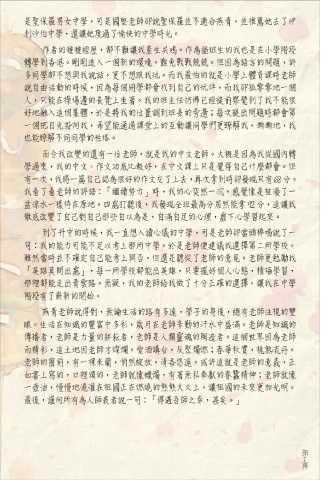 是聖保羅男女中學，可是國堅老師卻說聖保羅並不適合燕青，並推薦她去了伊
利沙伯中學，還讓她度過了愉快的中學時光。
作者的種種經歷，都不難讓我產生共鳴。作為插班生的我也是在小學階段
轉學到香港。剛剛進入一個新的環境，難免戰戰兢兢。但因為語言的問題，許
多同學都不想與我說話，更不想跟我玩。而我最怕的就是小學上體育課時老師
說自由活動的時候，因為每個同學都會找到自己的玩伴，而我卻孤零零地一個
人，只能在操場邊的長凳上坐着。我的班主任彷彿已經提前察覺到了我不能很
好地融入這個集體，於是將我的位置調到班長的旁邊；每次提出問題時都會第
一個把目光投向我，希望能通過課堂上的互動讓同學們更瞭解我。漸漸地，我
也能瞭解不同同學的性格。
而令我改變的還有一位老師，就是我的中文老師。大概是因為我從國內轉
學過來，我的中文、作文功底比較好，在中文課上只是覺得自己什麼都會。但
有一次，我將一篇自己認為很好的作文交了上去，再次拿到時卻發現只有68分。
我看了看老師的評語：「繼續努力」時，我的心突然一沉，感覺像是被潑了一
盆涼水一樣待在原地。四處打聽後，我發現全班最高分居然能拿92分，這讓我
徹底改變了自己對自己卻你自以為是，自滿自足的心理，虛下心學習起來。
到了升中的時候，我一直想入讀心儀的中學，可是老師卻當頭棒喝說了一
句：我的能力可能不足以考上那所中學。於是老師便建議我選擇第二所學校。
雖然當時並不確定自己能考上與否，但還是聽從了老師的意見。老師更勉勵我
「英雄莫問出處」，每一所學校都能出英雄，只要擺好個人心態，積極學習，
那裡都能走出青雲路。無疑，我的老師給我做了十分正確的選擇，讓我在中學
階段有了嶄新的開始。
燕青老師說得對，無論生活的路有多遠，學子的身後，總有老師注視的雙
眼。生活在知識的豐富中多彩，歲月在老師辛勤的汗水中盛滿。老師是知識的
傳播者，老師是力量的耕耘者，老師是人類靈魂的陶造者。這個世界因為老師
而精彩，這土地因老師才燦爛。當酒講台，灰髮燭燃；春華秋實，桃熟花丹。
老師的窗前，有一棵米蘭，悄然綻放，清香悠遠。或許這就是老師的意義，正
如書上寫的，口裡頌的，老師就像蠟燭，有着無私奉獻的春蠶精神；老師就像
一些油，慢慢地澆灌在祖國正在燃燒的熊熊大火上，讓祖國的未來更加光明。
最後，讓何所有為人師表者說一句：「得遇吾師之幸，甚矣。」